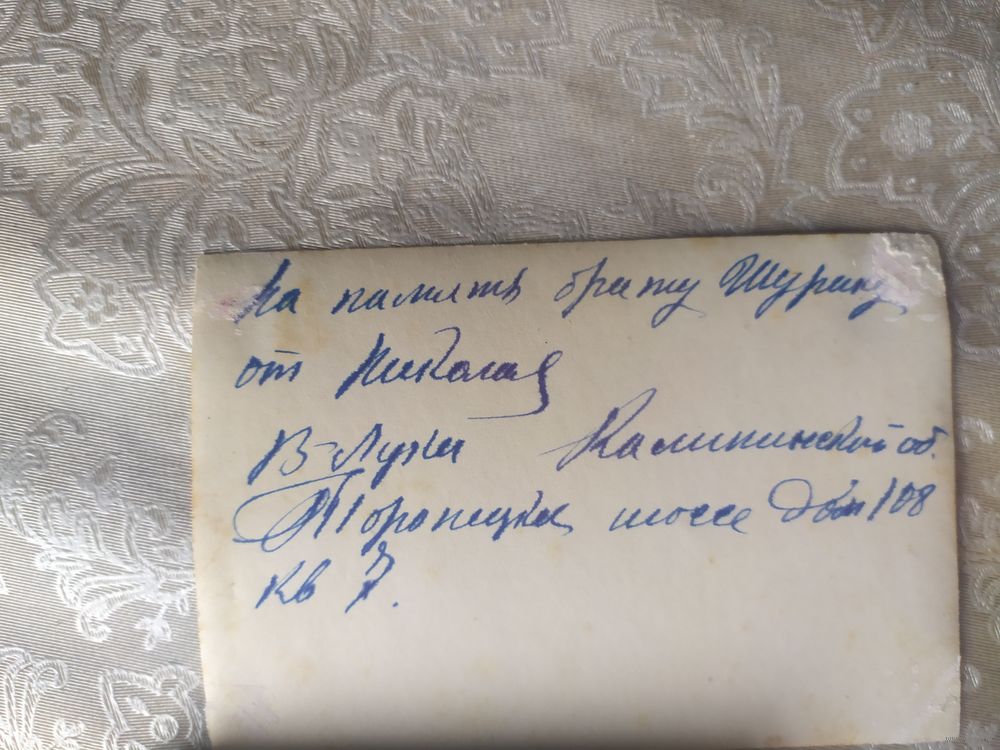 На память брату Шурику
от Николая
В-Луки Калининской об.
Торопецкое шоссе дом 108
кв 7.